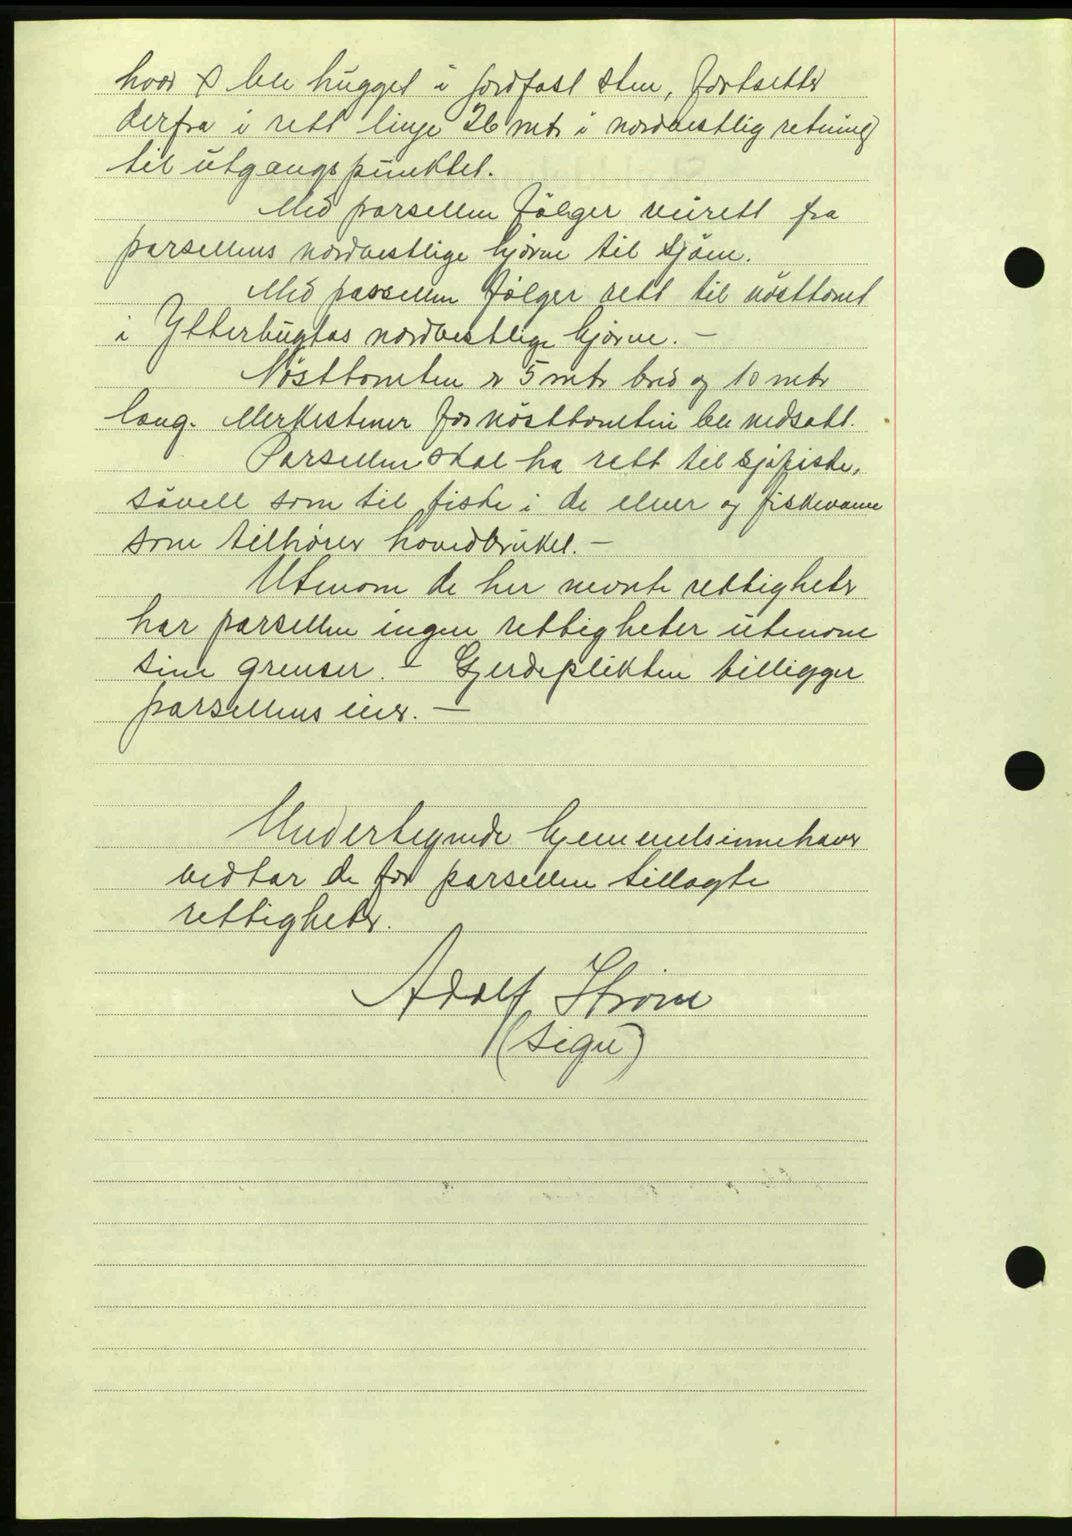 hvor x ble hugget i jordfast sten, fortsetter
derfra i rett linje 26 mtr i nordvestlig retning
til utgangspunktet.
Med parsellen følger veirett fra
parsellens nordvestlige hjørne til sjøen.
Med parsellen følger rett til nøsttomt
i Ytterbugtas nordvestlige hjørne. –
Nøsttomten er 5 mtr bred og 10 mtr
lang. Merkestener for nøsttomten ble nedsatt.
Parsellen skal ha rett til sjøfiske,
såvell som til fiske i de elver og fiskevann
som tilhører hovedbruket. –
Utenom de her nevnte rettigheter
har parsellen ingen rettigheter utenom
sine grenser. – Gjerdeplikten tilligger
parsellens eier. –
Undertegnede hjemmelsinnehaver
vedtar de for parsellen tillagte
rettigheter.
Adolf Strøm
(sign)